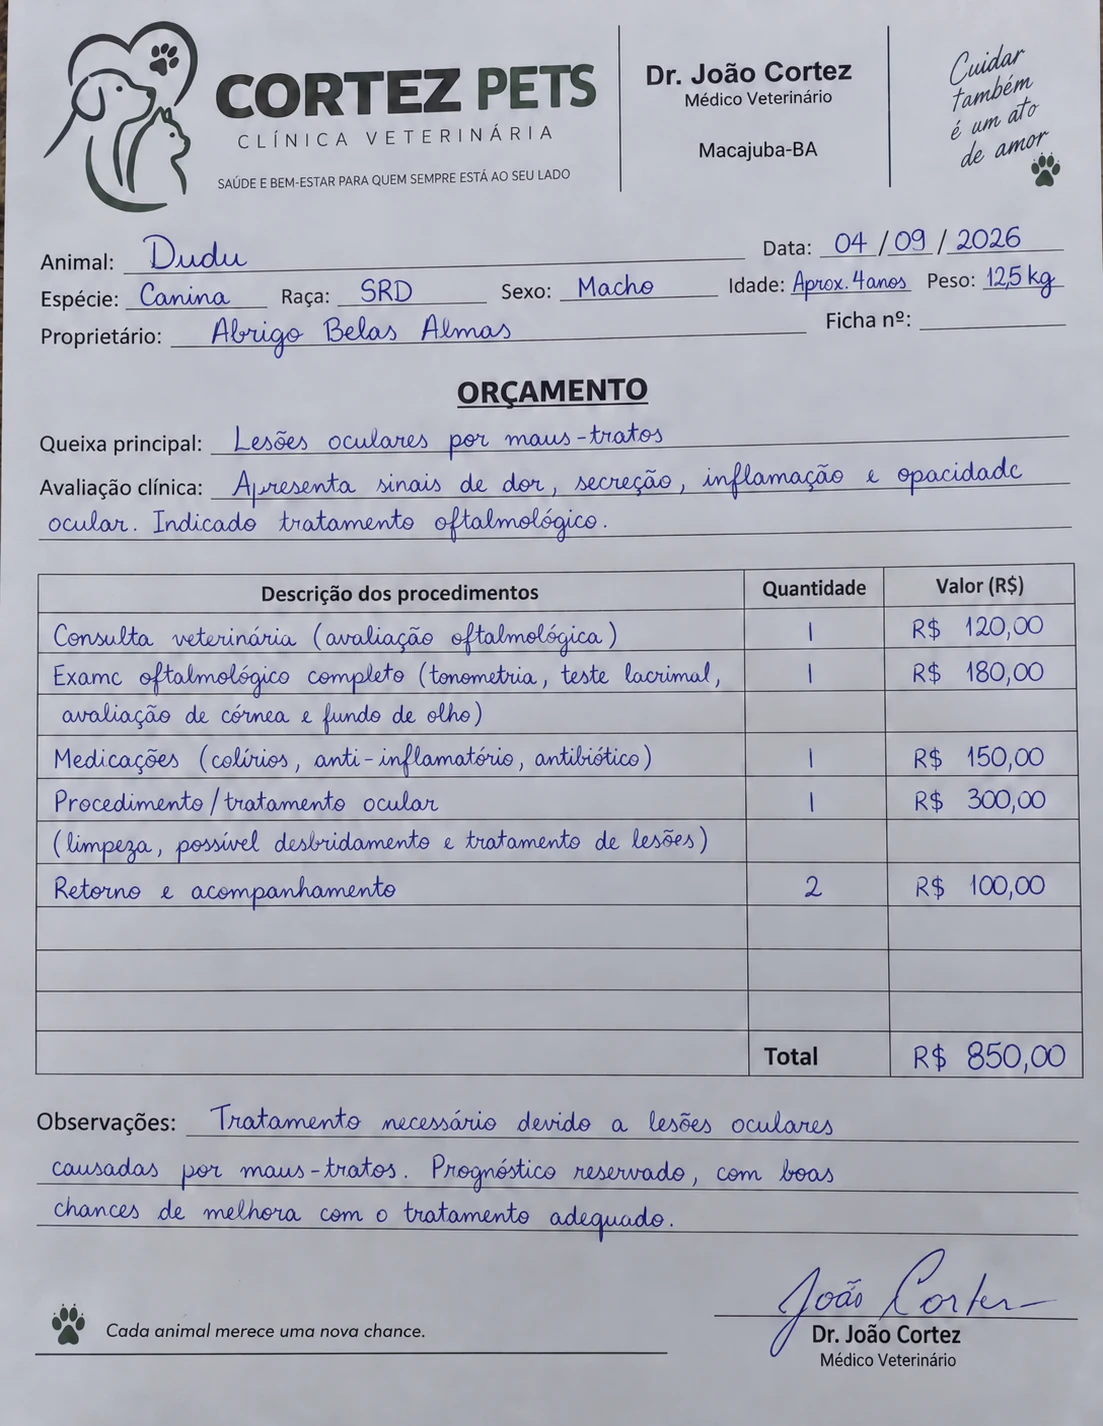 CORTEZ PETS
CLÍNICA VETERINÁRIA
SAÚDE E BEM-ESTAR PARA QUEM SEMPRE ESTÁ AO SEU LADO
Dr. João Cortez
Médico Veterinário
Macajuba-BA
Cuidar
também
é um ato
de amor
Animal: Dudu Data: 04/09/2026
Espécie: Canina Raça: SRD Sexo: Macho Idade: Aprox. 4 anos Peso: 12,5 kg
Proprietário: Abrigo Belas Almas Ficha nº:
ORÇAMENTO
Queixa principal: Lesões oculares por maus-tratos
Avaliação clínica: Apresenta sinais de dor, secreção, inflamação e opacidade
ocular. Indicado tratamento oftalmológico.
Descrição dos procedimentos Quantidade Valor (R$)
Consulta veterinária (avaliação oftalmológica) 1 R$ 120,00
Exame oftalmológico completo (tonometria, teste lacrimal, 1 R$ 180,00
avaliação de córnea e fundo de olho)
Medicações (colírios, anti-inflamatório, antibiótico) 1 R$ 150,00
Procedimento/tratamento ocular 1 R$ 300,00
(limpeza, possível desbridamento e tratamento de lesões)
Retorno e acompanhamento 2 R$ 100,00
Total R$ 850,00
Observações: Tratamento necessário devido a lesões oculares
causadas por maus-tratos. Prognóstico reservado, com boas
chances de melhora com o tratamento adequado.
João Cortez
Dr. João Cortez
Médico Veterinário
Cada animal merece uma nova chance.